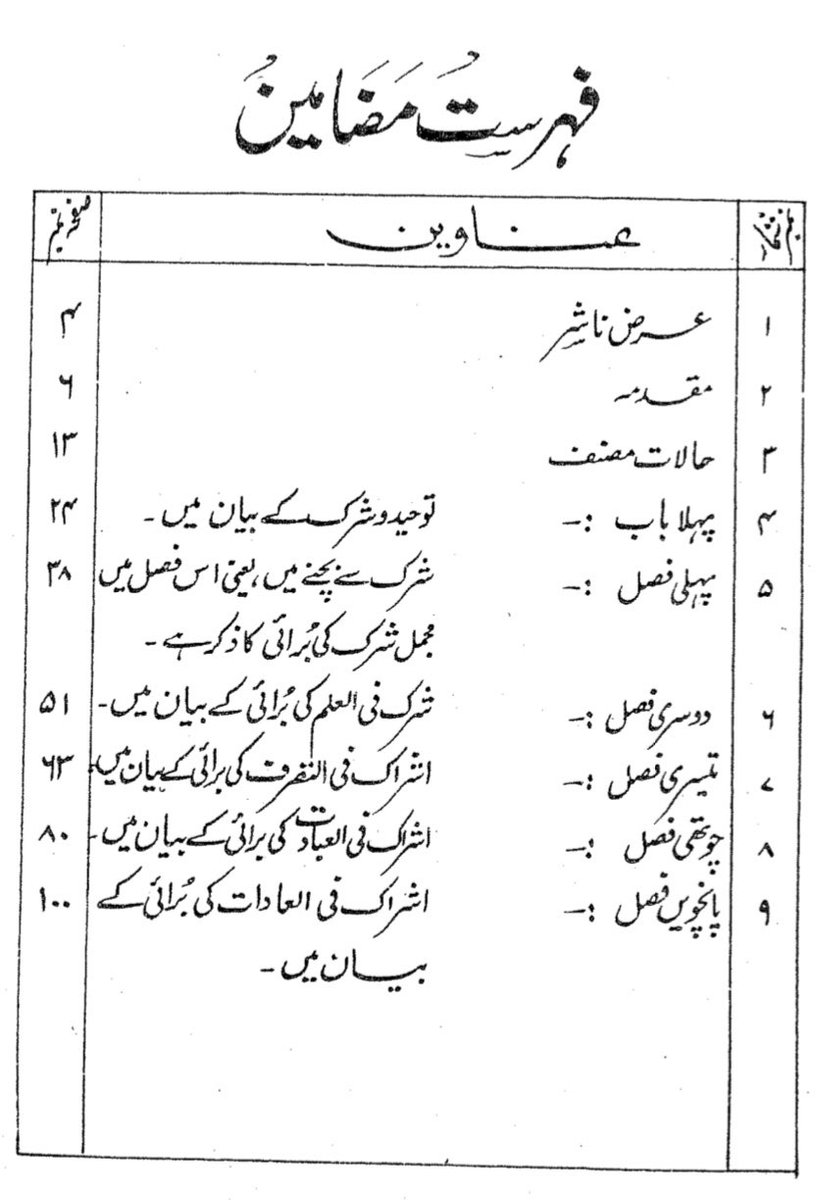 فہرست مضامین
نمبر شمار عناوین صفحہ نمبر
۱ عرض ناشر ۴
۲ مقدمہ ۶
۳ حالات مصنف ۱۳
۴ پہلا باب :- توحید و شرک کے بیان میں۔ ۲۴
۵ پہلی فصل :- شرک سے بچنے میں، یعنی اس فصل میں ۳۸
مجمل شرک کی بُرائی کا ذکر ہے۔
۶ دوسری فصل :- شرک فی العلم کی بُرائی کے بیان میں۔ ۵۱
۷ تیسری فصل :- اشراک فی التصرف کی برائی کے بیان میں۔ ۶۳
۸ چوتھی فصل :- اشراک فی العبادت کی برائی کے بیان میں۔ ۸۰
۹ پانچویں فصل :- اشراک فی العادات کی بُرائی کے ۱۰۰
بیان میں۔